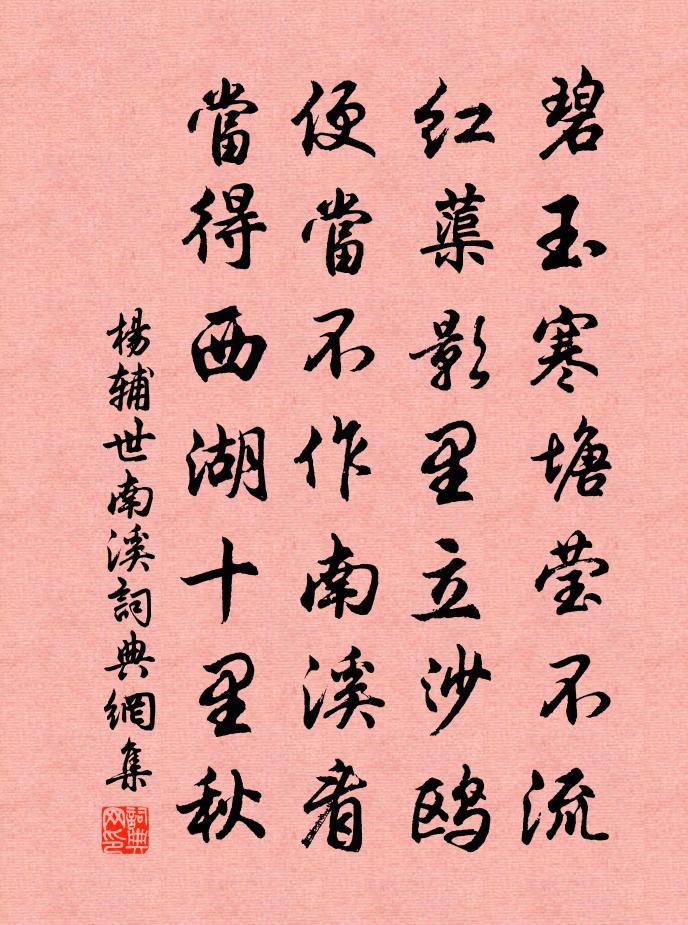 碧玉寒塘莹不流
红蕖影里立沙鸥
便當不作南溪看
當得西湖十里秋
楊辅世南溪詞典網集
詞典网印